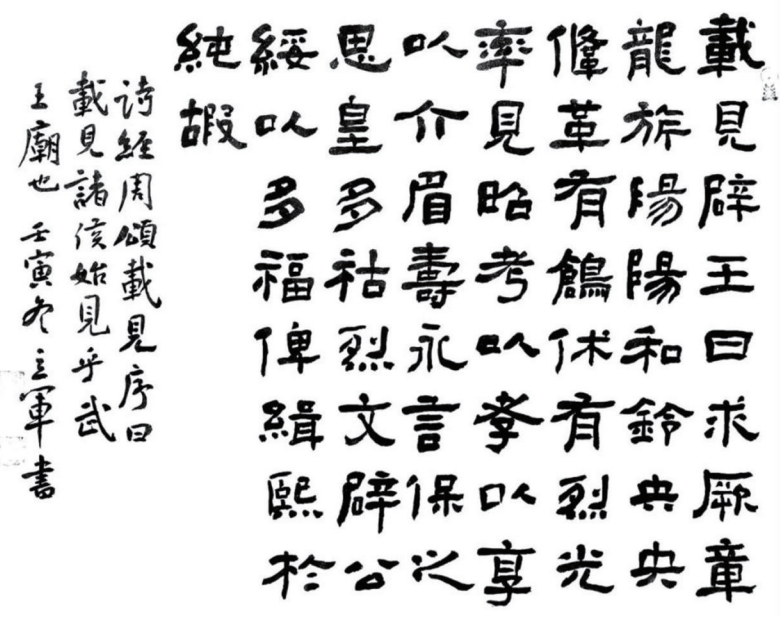 載見辟王曰求厥章
龍旂陽陽和鈴央央
鞗革有鶬休有烈光
率見昭考以孝以享
以介眉壽永言保之
思皇多祜烈文辟公
綏以多福俾緝熙於
純嘏
詩經周頌載見序曰
載見諸侯始見乎武
王廟也 壬寅冬立軍書